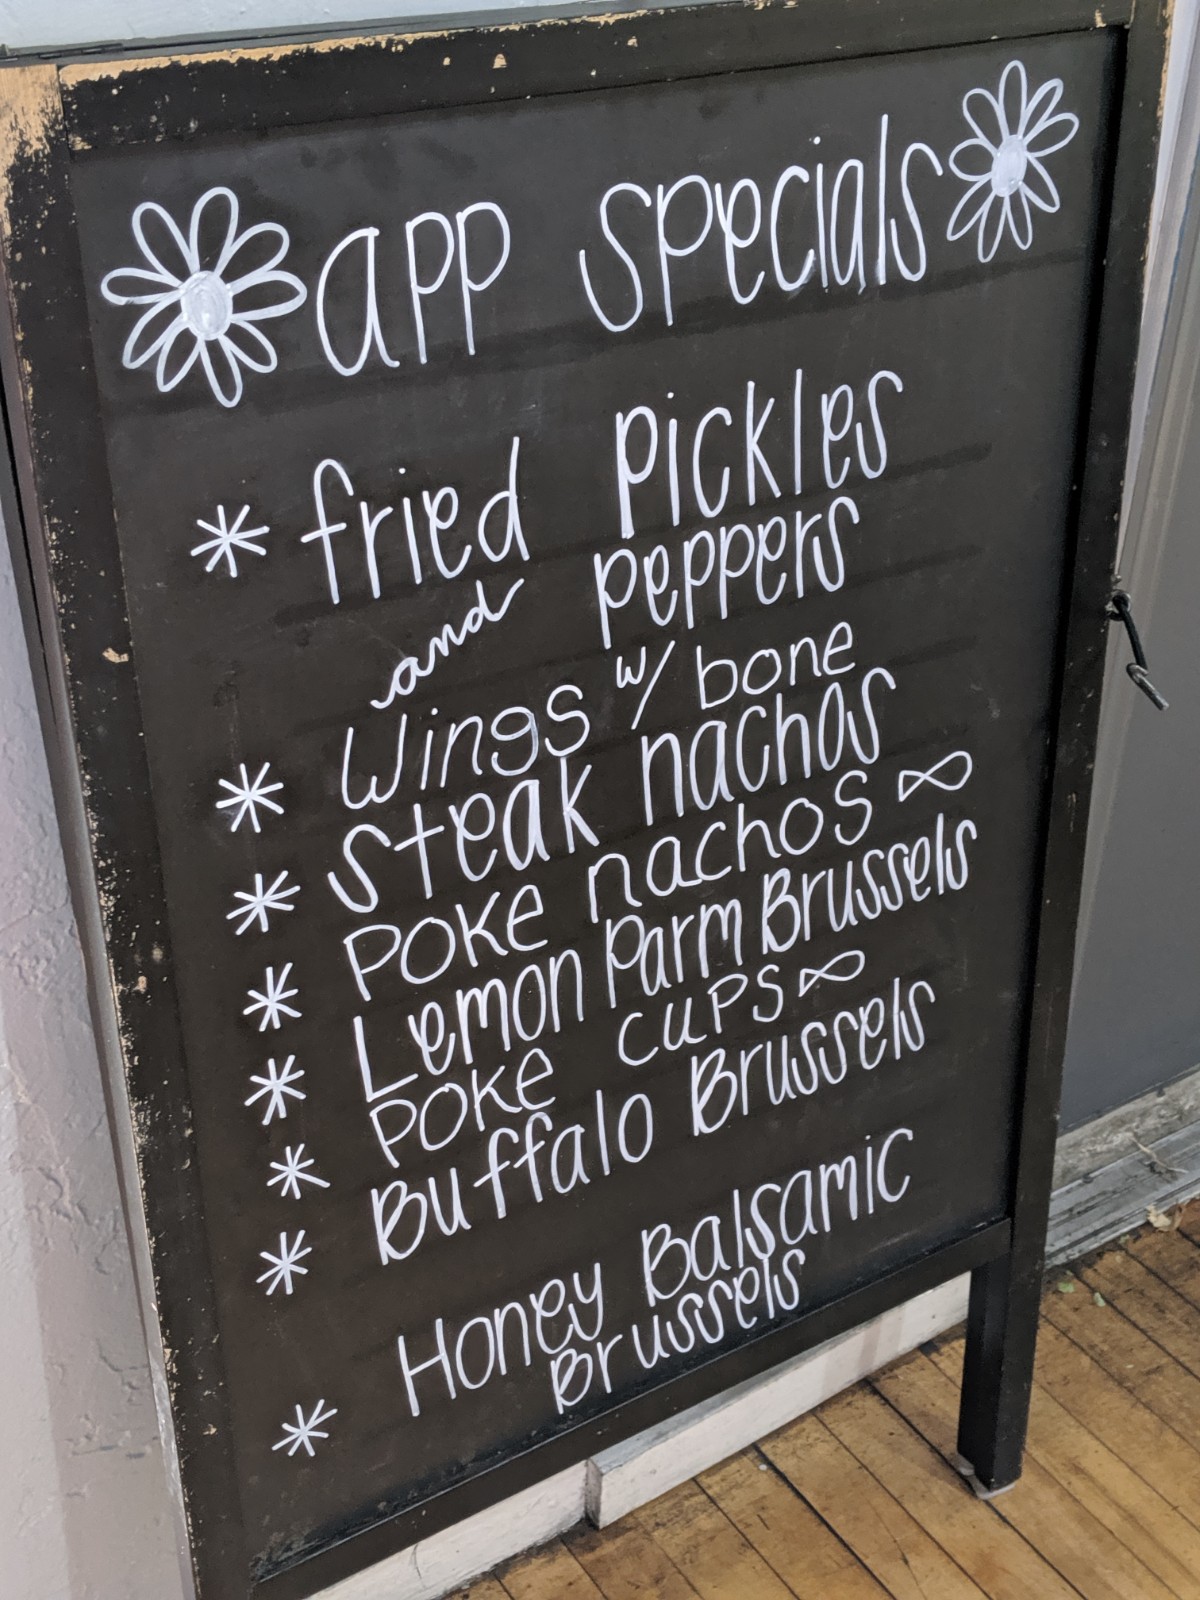 app specials
* fried pickles
and peppers
* Wings w/ bone
* steak nachos
* POKE nachos
* Lemon Parm Brussels
* POKE CUPS
* Buffalo Brussels
* Honey Balsamic
Brussels